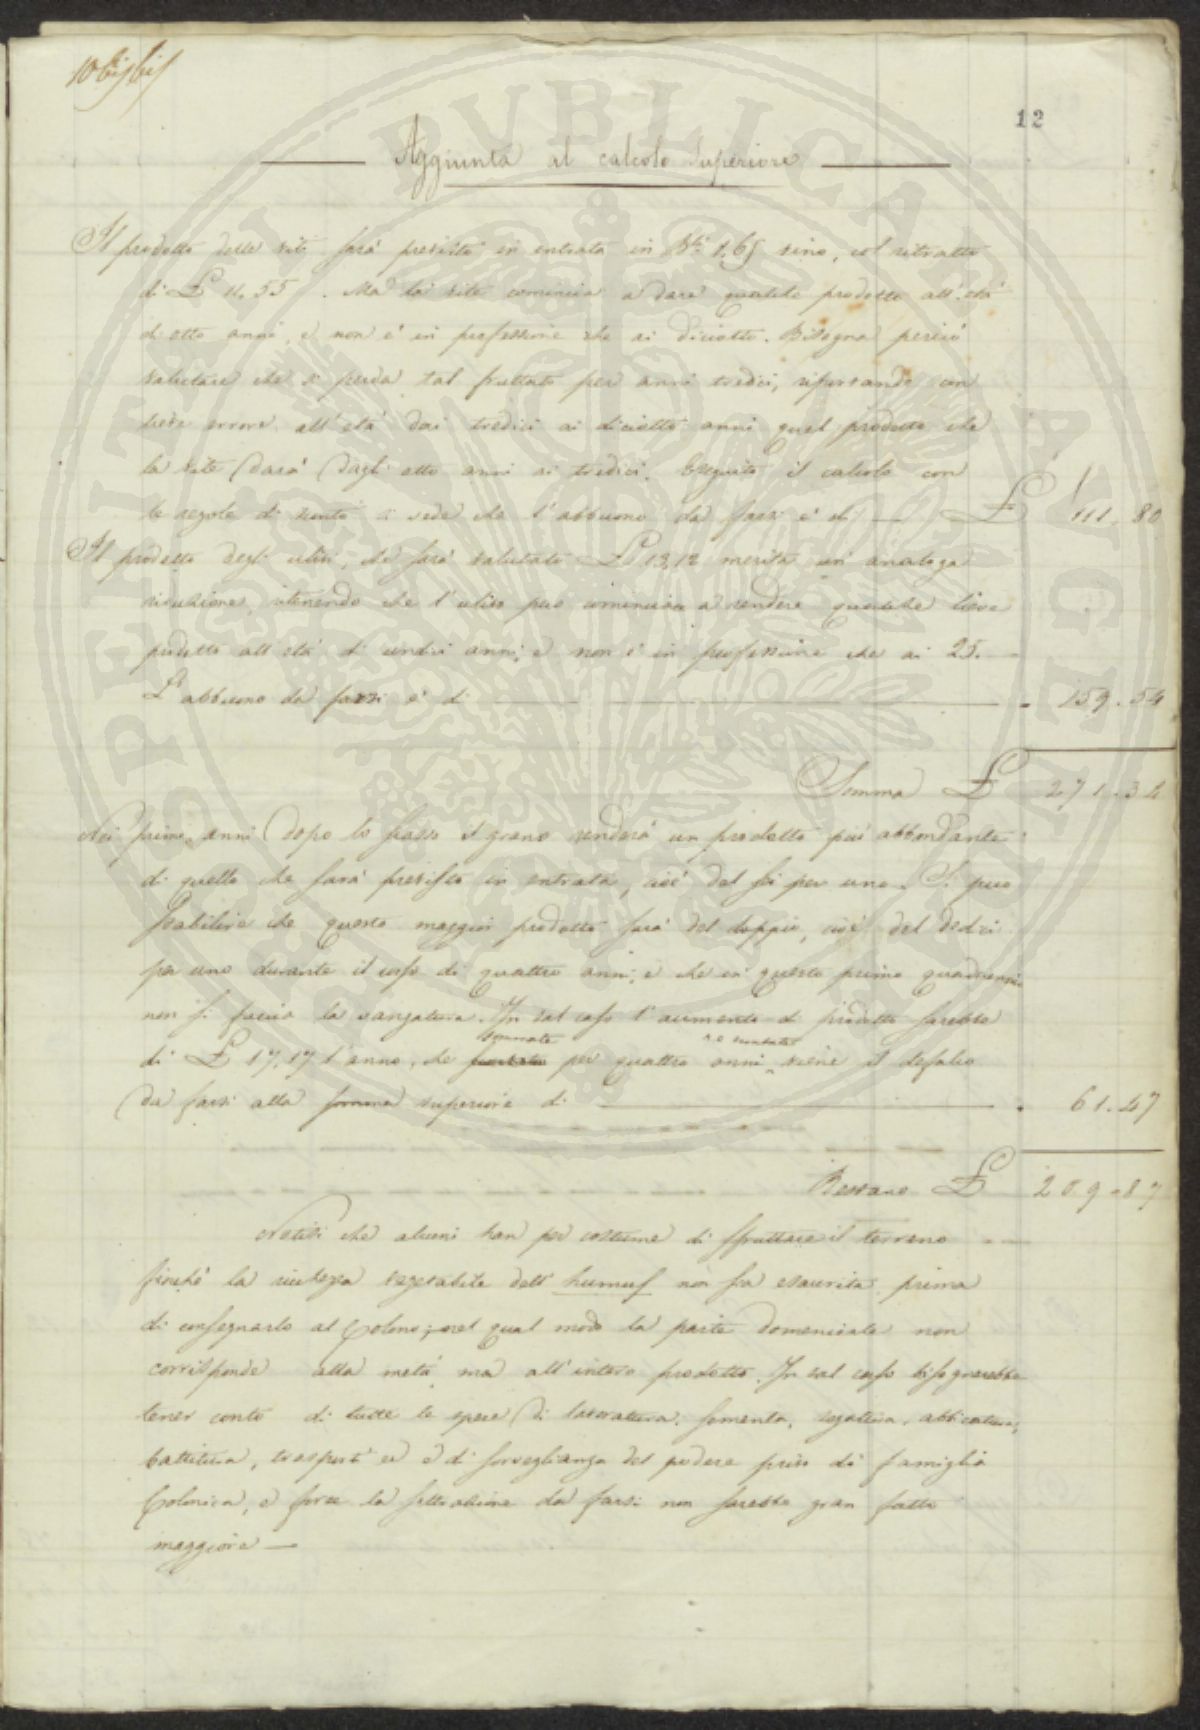 10 bis bis
12
Aggiunta al calcolo superiore
Il prodotto delle viti sarà previsto in entrata in 1,65 vino, col ritratto
di £ 11,55. Ma la vite comincia a dare qualche prodotto all'età
di otto anni, e non è in perfezione che ai diciotto. Bisogna perciò
valutare che si perda tal fruttato per anni tredici, riportando con
lieve errore all'età dai tredici ai diciotto anni quel prodotto che
la vite darà dagli otto anni ai tredici. Eseguito il calcolo con
le regole di sconto si vede che l'abbuono da farsi è di — £ 111.80
Il prodotto degli ulivi, che sarà valutato £ 13,12 merita un'analoga
riduzione, ritenendo che l'ulivo può cominciare a rendere qualche lieve
prodotto all'età di undici anni, e non è in perfezione che ai 25.—
L'abbuono da farsi è di — 159.54
Somma £ 271.34
Nei primi anni dopo lo scasso il grano renderà un prodotto più abbondante
di quello che sarà previsto in entrata, cioè del sei per uno. Si può
stabilire che questo maggior prodotto sarà del doppio, cioè del dodici
per uno durante il corso di quattro anni, e che in questo primo quadriennio
non si faccia la vangatura. In tal caso l'aumento di prodotto sarebbe
sommato e scontato
di £ 17,17 l'anno, che per quattro anni viene il defalco
da farsi alla somma superiore di — 61.47
Restano £ 209.87
Notisi che alcuni han per costume di sfruttare il terreno
finchè la ricchezza vegetabile dell'humus non sia esaurita prima
di consegnarlo al Colono; nel qual modo la parte domenicale non
corrisponde alla metà ma all'intero prodotto. In tal caso bisognerebbe
tener conto di tutte le spese di lavoratura, sementa, segatura, abbicatura,
battitura, trasporti ec e di sorveglianza del podere privo di famiglia
Colonica, e forse la sottrazione da farsi non sarebbe gran fatto
maggiore —
SPEI TA PUBLICAE AUGEN